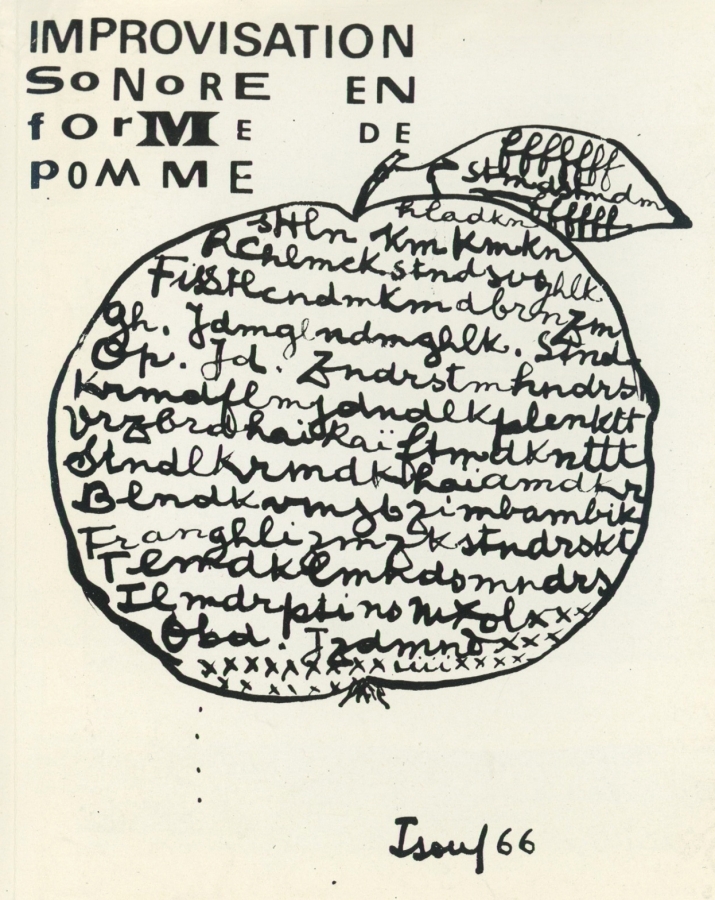 IMPROVISATION
SoNoRE EN
forME DE
POMME
fffffff
stmdstmdm
ffffff
hladkn
sHln Km Kmkn
RChlmck stndsvghlk
FissHcndmkm dbrnzm
gh. Jdmglndmghlk. Stnd
Op. Jd. Zndrstmhndrs
Krmdflmjdndlkplenktt
Vrzbrdhaikaï ftmdknttt
Stndlkrmdkhaiamdkr
Blndkvmjbzimbambik
Franghlizmzkstndrskt
Tlmdklmhdsmndrs
Ilmdrptinsmxolxxx
Obd. Jzdmnoxxxx
xxxxxxxxxxxiiiixxxxx
xxxxxxx
Isou/66